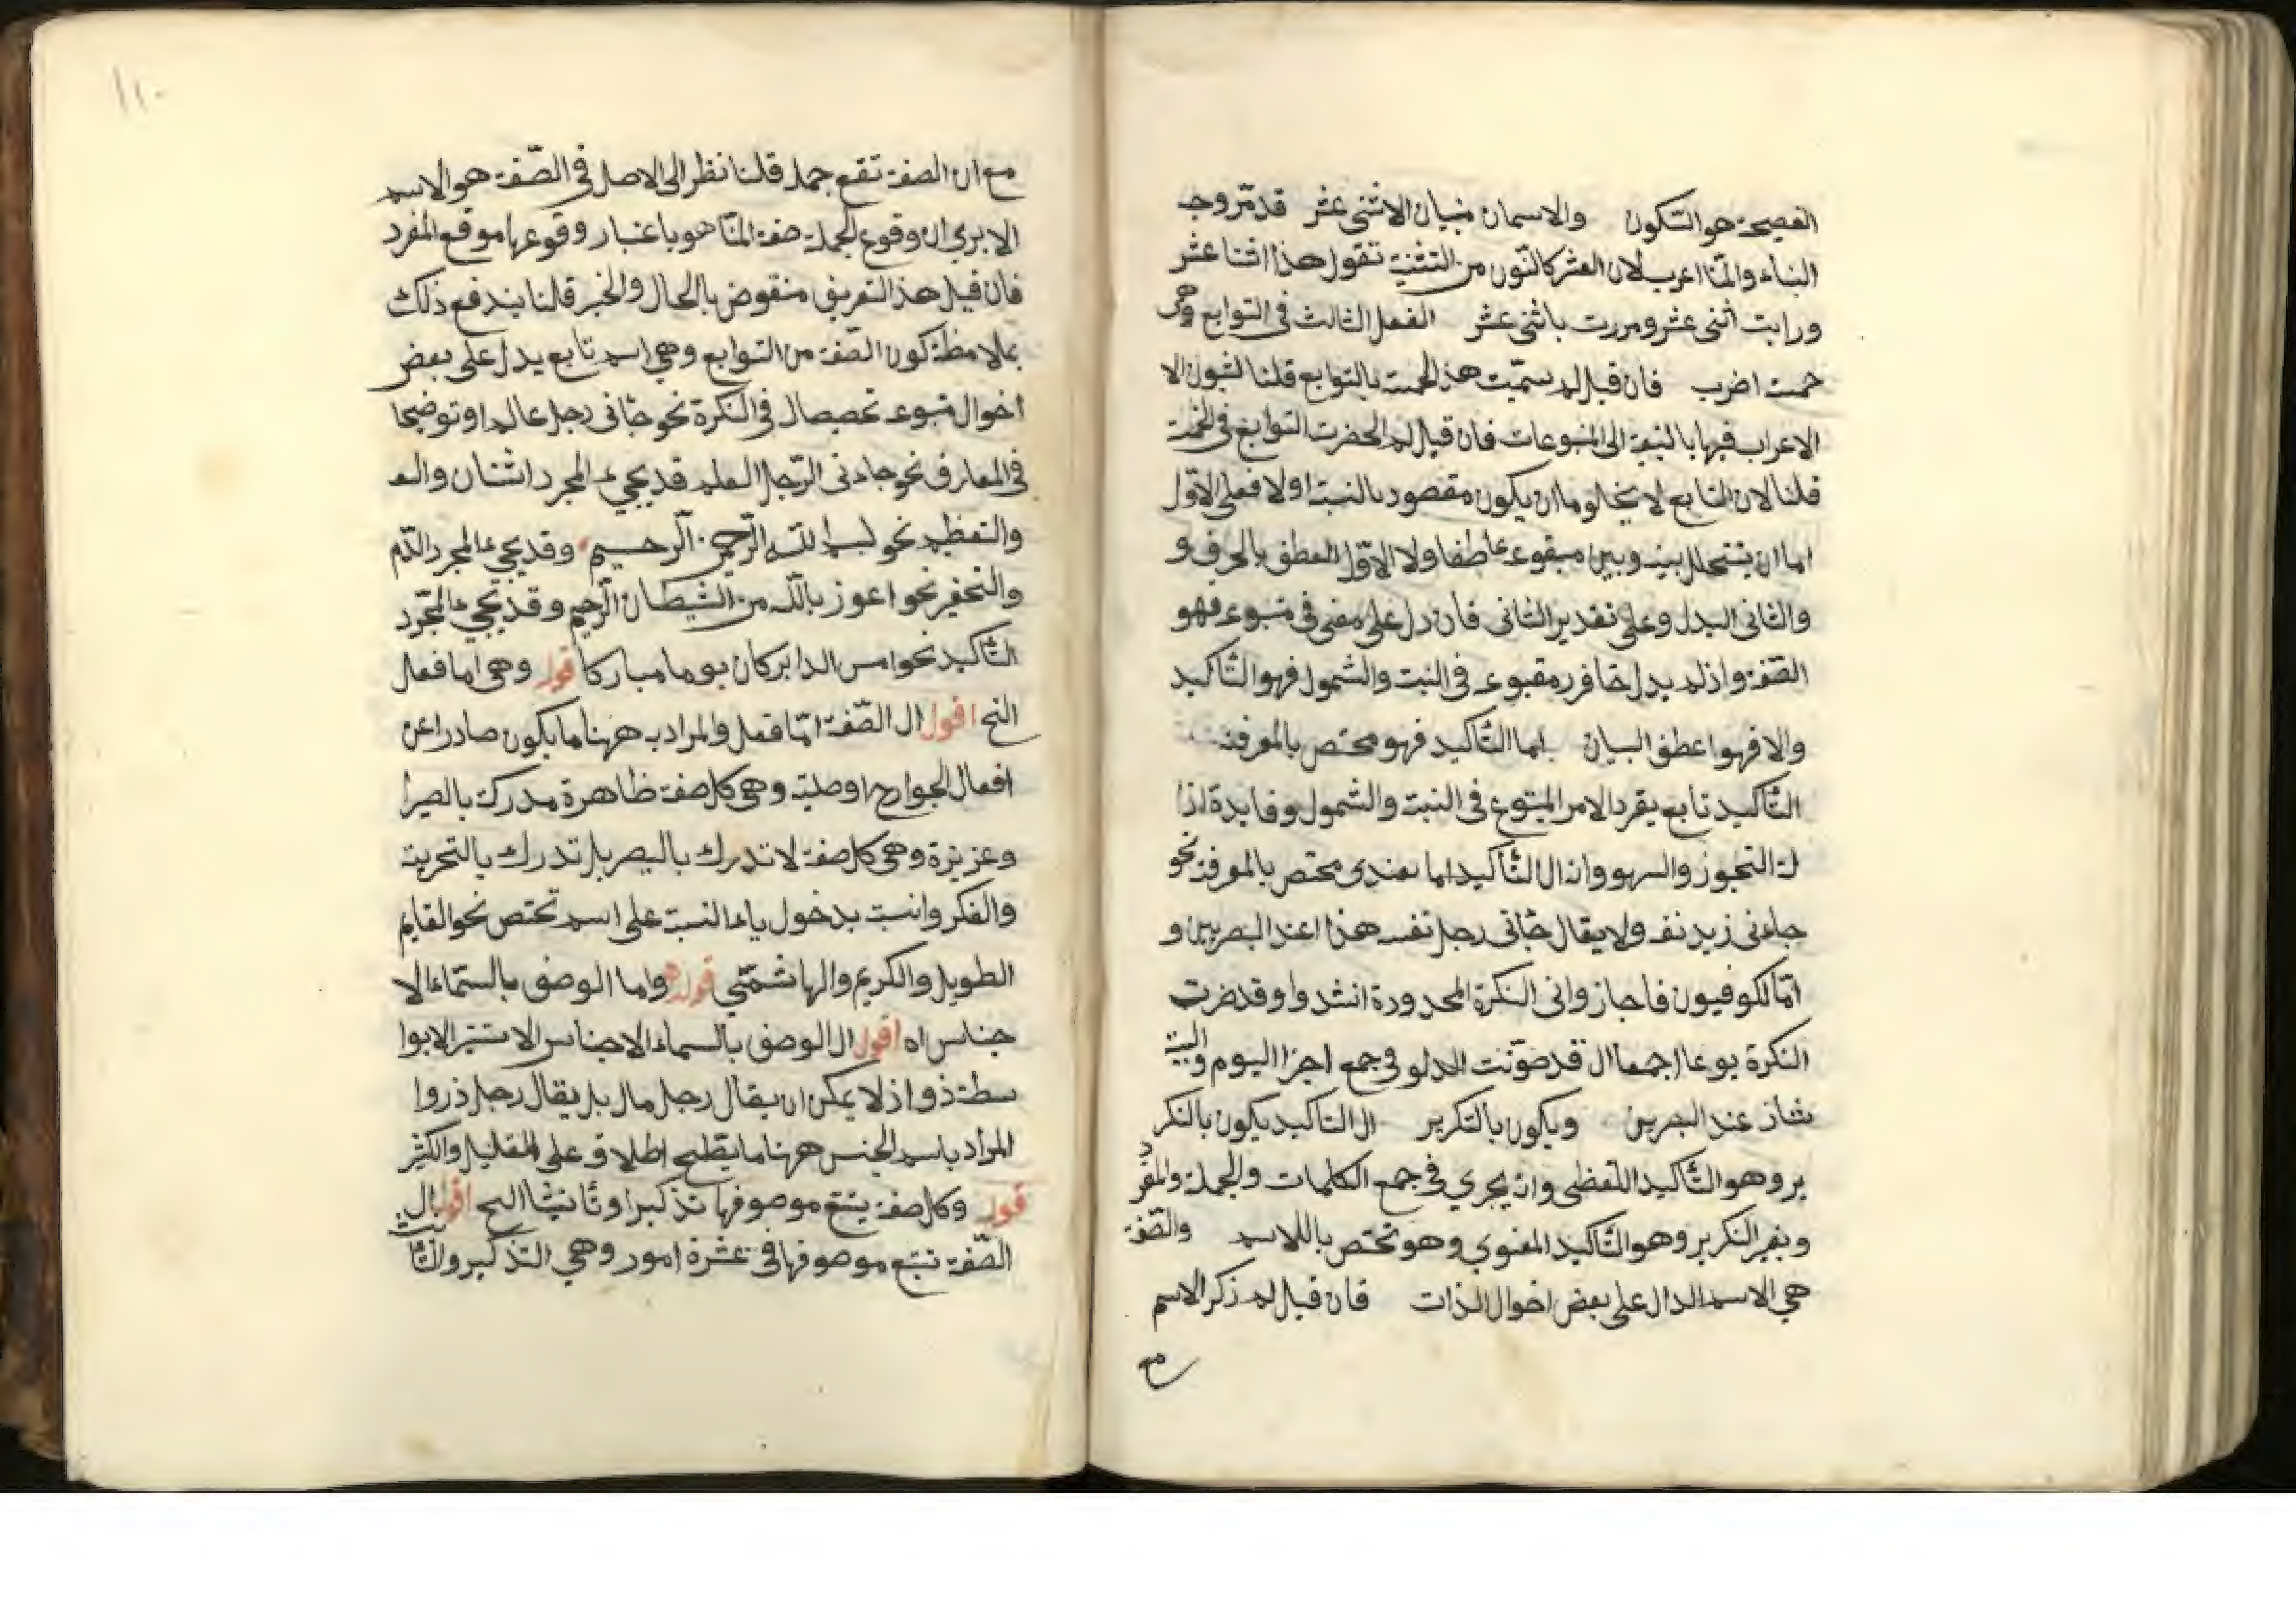 الفصيحة هو السكون والاسمان مبنيان الا اثنى عشر قد مر وجه
البناء وانما اعرب لان العشر كالنون من التثنية تقول هذا اثنا عشر
ورايت اثنى عشر ومررت باثنى عشر الفصل الثالث فى التوابع وهى
خمسة اضرب فان قيل لم سميت هذ الخمسة بالتوابع قلنا لقبول الا
الاعراب فيها بالتبعية الى المتبوعات فان قيل لم انحضرت التوابع فى الخمسة
قلنا لان التابع لا يخلو ما ان يكون مقصود بالنسبة اولا فعلى الاول
اما ان يتخلل بينه وبين متبوعه عاطفا ولا الاول العطف بالحرف و
والثانى البدل وعلى تقدير الثانى فان دل على معنى فى متبوعه فهو
الصفة واذ لم يدل فى النسبة والشمول فهو التأكيد
والا فهوا عطف البيان اما التأكيد فهو مختص بالمعرفة
التأكيد تابع يقرد الامر المتبوع فى النسبة والشمول وفايدة اذا
لة التجوز والسهو وان التأكيد اما مختص بالمعرفة نحو
جاءنى زيد نفسه ولا يقال جأنى رجل نفسه هذا عند البصريين و
امالكوفيون فاجازوا فى النكرة المحدورة انشدوا وقد ضرت
النكرة يوعا اجمعا ال قد صوتت الدلو فى جمع اجزا اليوم والبيت
شاذ عند البصرين ويكون بالتكرير ال التاكيد يكون بالتكر
ير وهو التأكيد اللفظى وانه يجري فى جمع الكلمات والجملة والمفرد
وبغير التكرير وهو التأكيد المعنوي وهو تختص باللاسم والصفة
هي الاسم الدال على بعض احوال الذات فان قيل لم ذكر الاسم
مع
١١٠
مع ان الصفة تقع جملة قلنا نظر الى الاصل فى الصفة هو الاسم
الا يرى ان وقوع الجملة صفة انما هو باعتبار وقوعها موقع المفرد
فان قيل هذ التعريف منقوض بالحال والخبر قلنا يندفع ذلك
بملاحظة كون الصفة من التوابع وهي اسم تابع يدل على بعض
احوال متبوعه تخصيصا ل فى النكرة نحو جأنى رجل عالم او توضيحا
فى المعارف نحو جاءنى الرجل العلم قد يجيء لمجرد الثنان والتعـ
والتعظيم نحو بسم الله الرحمن الرحيم وقد يجيء لمجرد الذم
والتحقير نحو اعوز بالله من الشيطان الرجيم وقد يجيء لمجرد
التأكيد نحو امس الدابر كان يوما مباركا قوله وهى اما فعل
الخ اقول ال الصفة اما فعل والمراد به ههنا ما يكون صادرا عن
افعال الجوارح او حلية وهى كل صفة ظاهرة مدركة بالبصر
وعزيزة وهى كل صفة لا تدرك بالبصر بل تدرك بالتجربة
والفكر وانسبة بدخول ياء النسبة على اسم تختص نحو القايم
الطويل والكريم والهاشمي قوله واما الوصف بالسماء الا
جناس اه اقول ال الوصف بالسماء الاجناس الا بوا
سطة ذو اذ لا يمكن ان يقال رجل مال بل يقال رجل ذروا
المراد باسم الجنس ههنا ما يطلح اطلاقه على القليل والكثير
قوله وكل صفة يتبع موصوفها تذكيرا وتأنيثا الخ اقول ال
الصفة تتبع موصوفها فى عشرة امور وهي التذكير والتأنيث